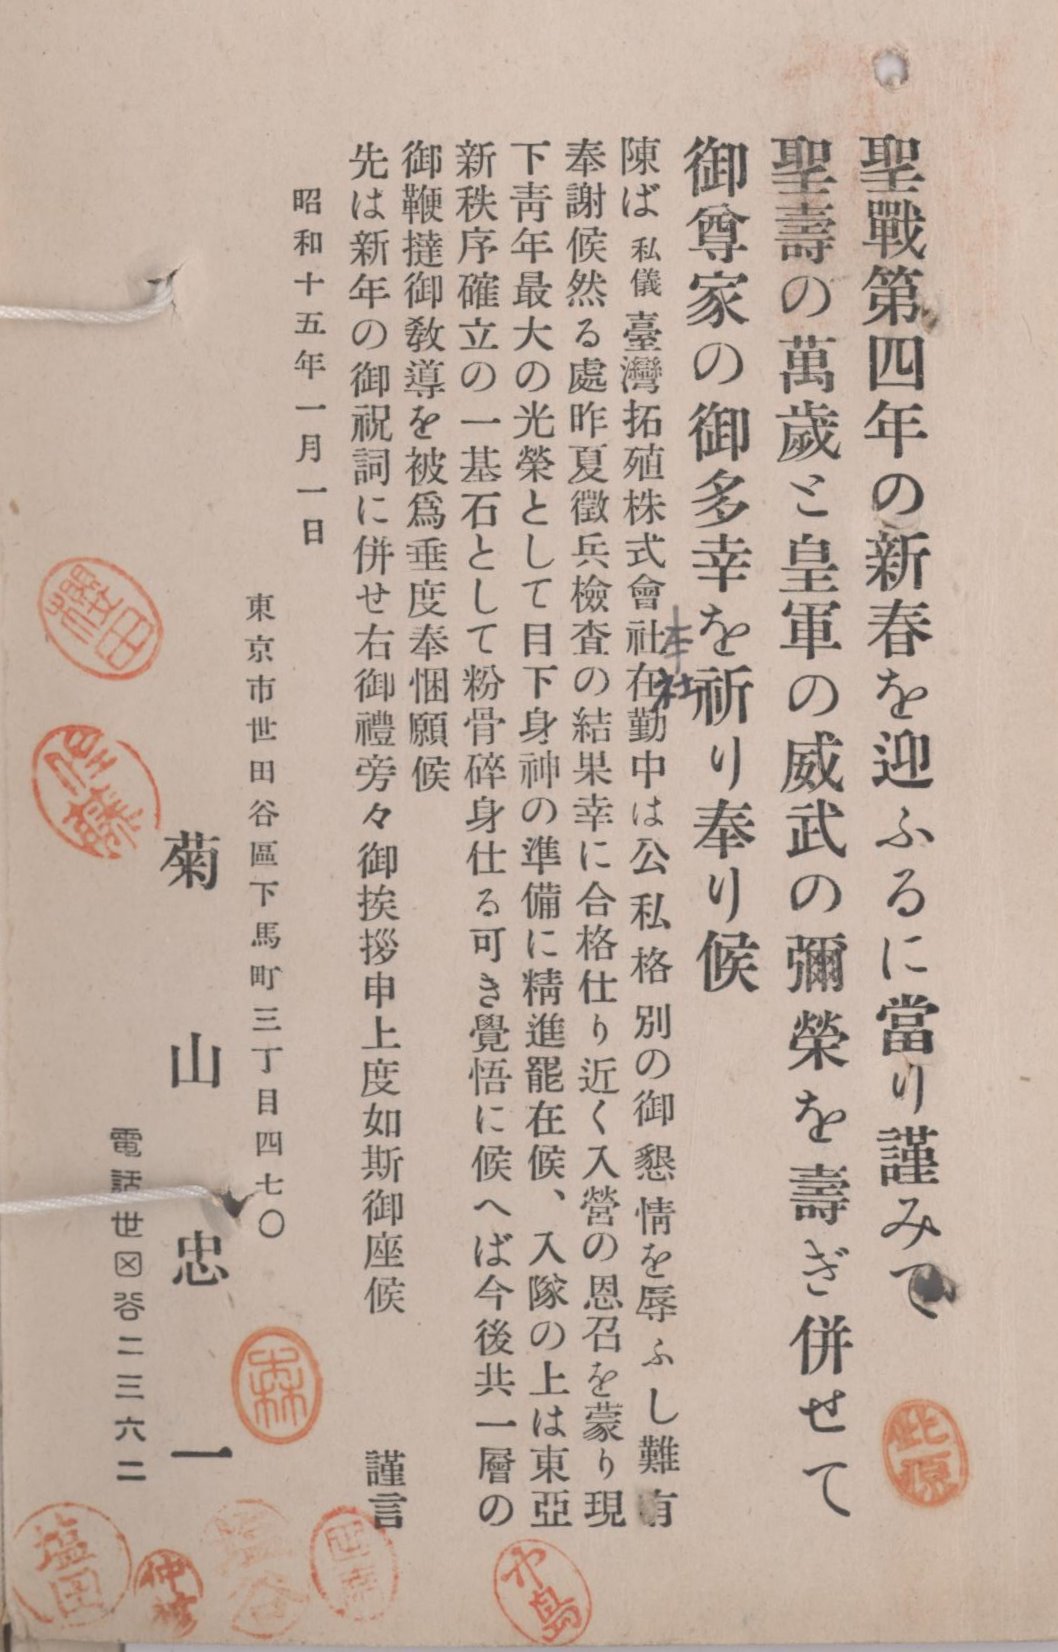 聖戰第四年の新春を迎ふるに當り謹みて
聖壽の萬歲と皇軍の威武の彌榮を壽ぎ併せて
御尊家の御多幸を祈り奉り候
本社
陳ば私儀臺灣拓殖株式會社在勤中は公私格別の御懇情を辱ふし難有
奉謝候然る處昨夏徵兵檢査の結果幸に合格仕り近く入營の恩召を蒙り現
下靑年最大の光榮として目下身神の準備に精進罷在候、入隊の上は東亞
新秩序確立の一基石として粉骨碎身仕る可き覺悟に候へば今後共一層の
御鞭撻御敎導を被爲垂度奉悃願候
先は新年の御祝詞に併せ右御禮旁々御挨拶申上度如斯御座候 謹言
昭和十五年一月一日
東京市世田谷區下馬町三丁目四七〇
菊山忠一
電話世田谷二三六二
櫻田
佐藤
森
此原
塩田
仲
谷
中島